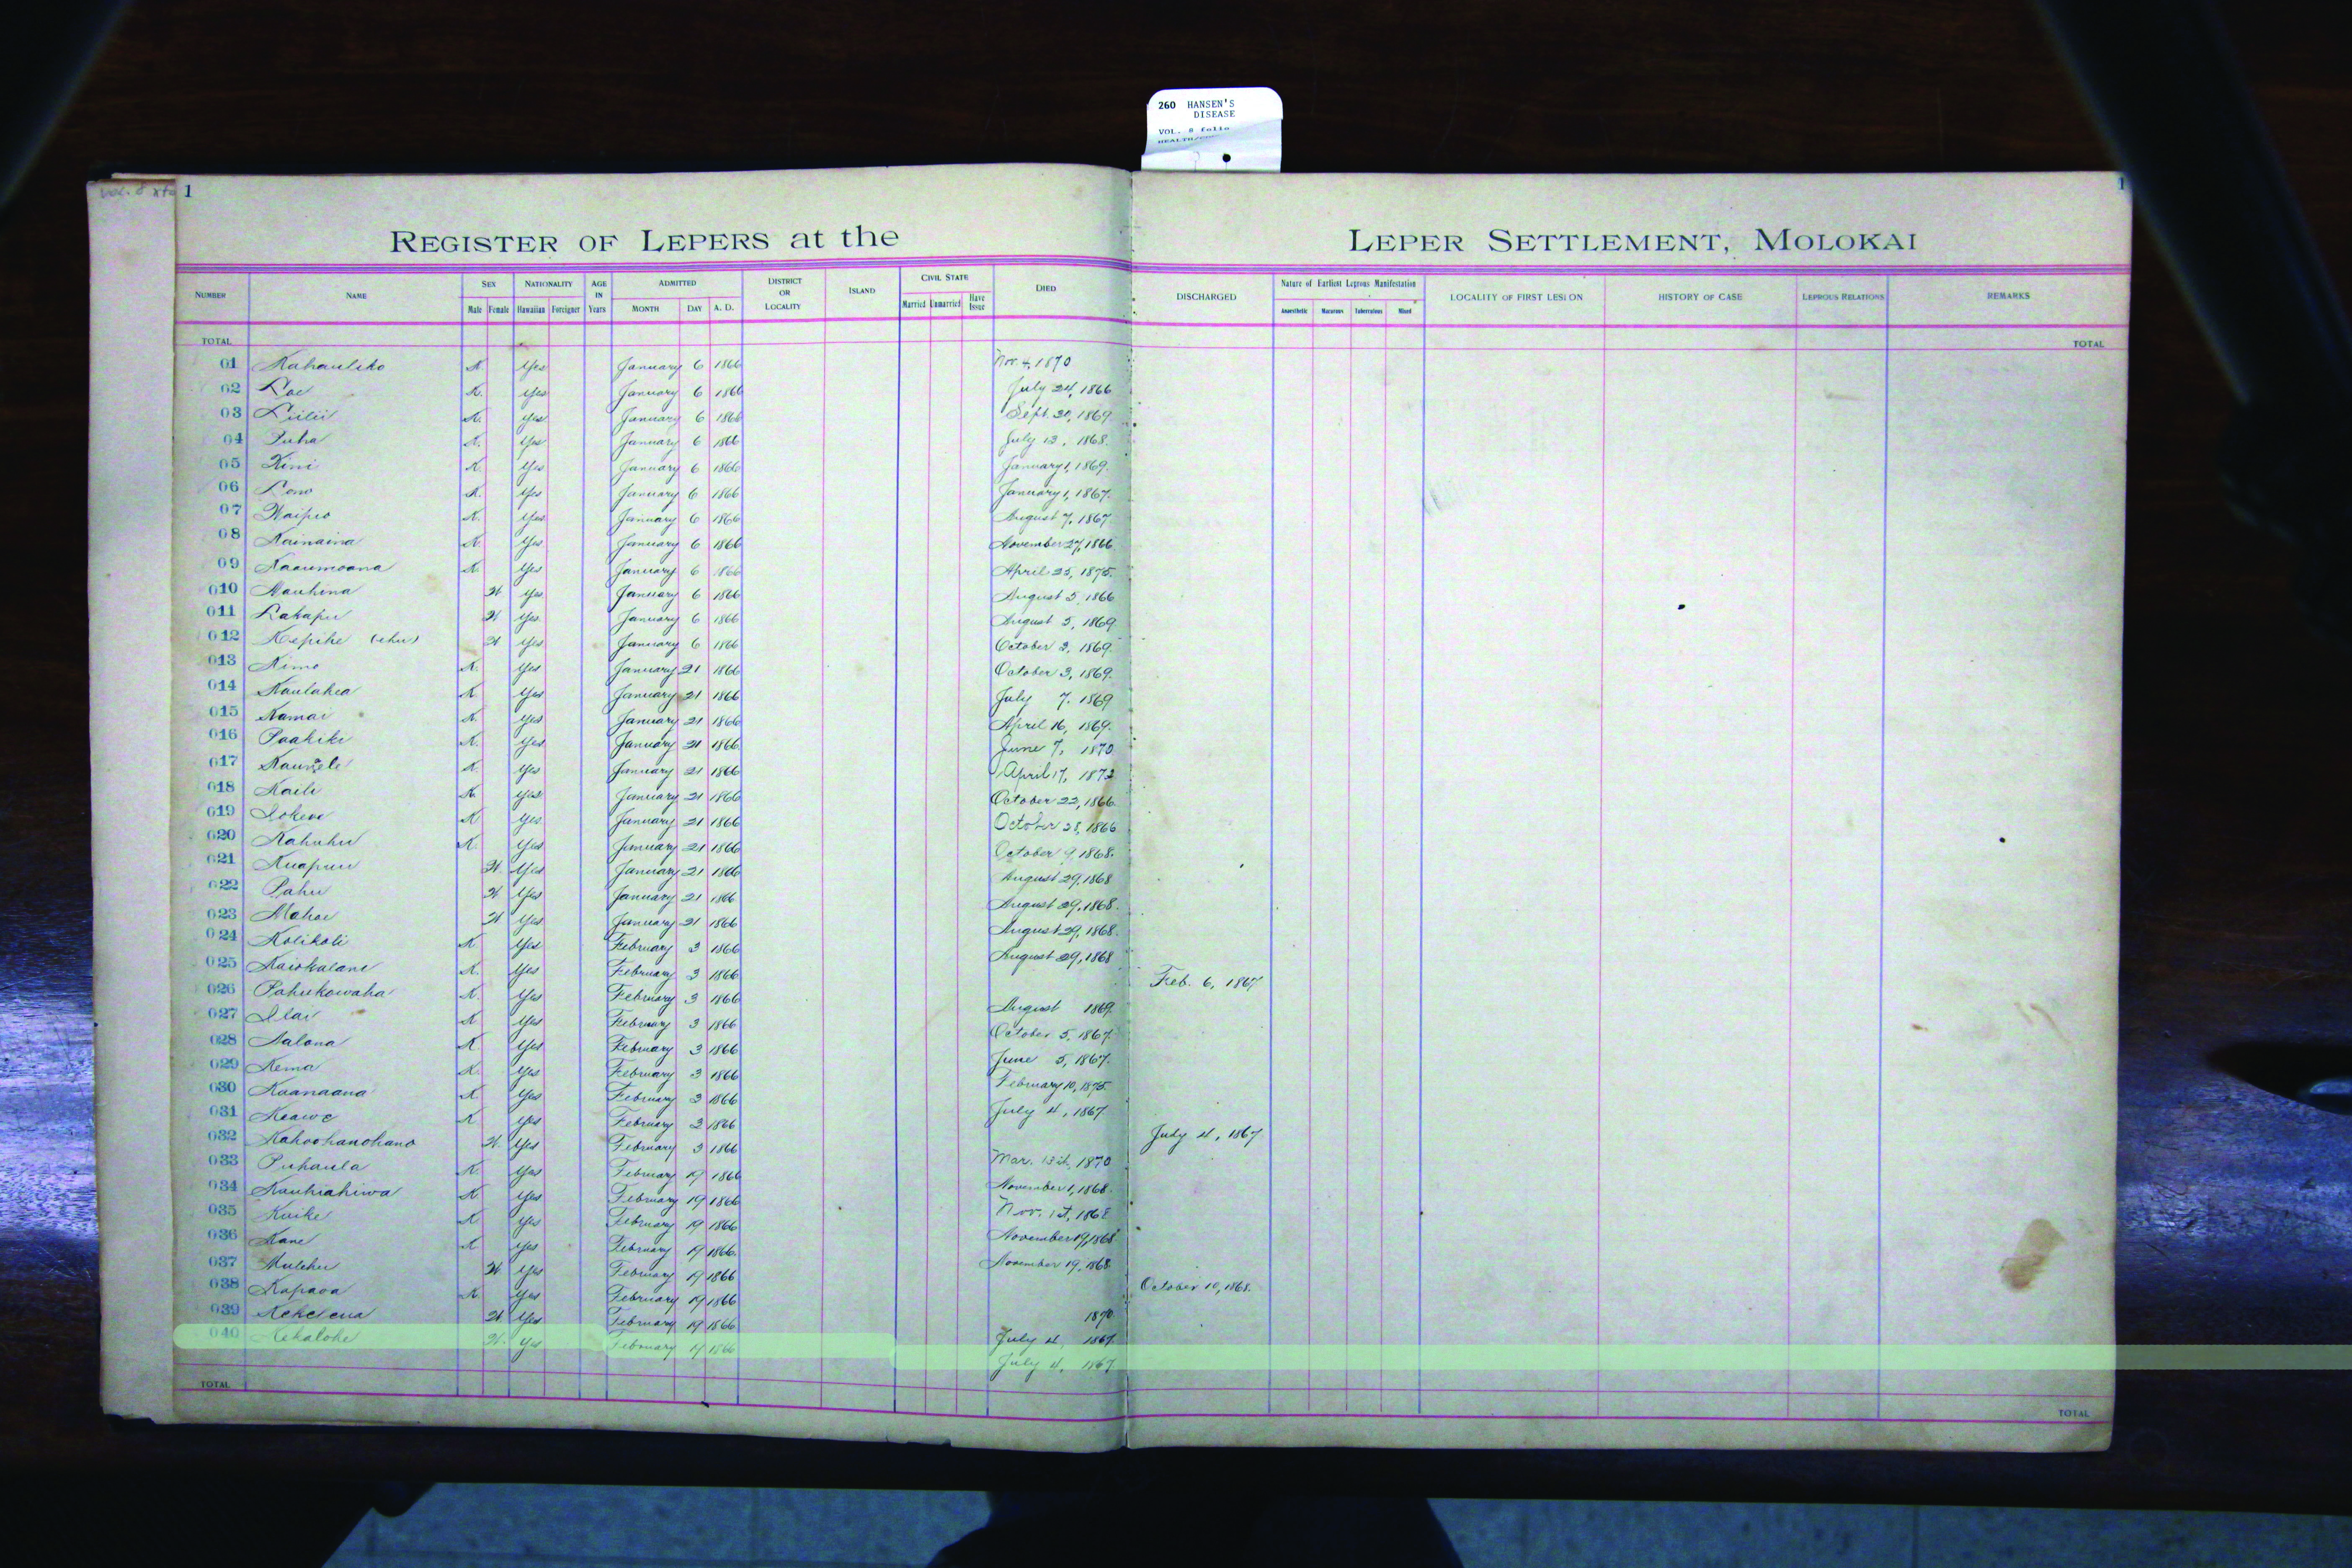 260 HANSEN'S
DISEASE
VOL. 8 folio
1
1
REGISTER OF LEPERS at the LEPER SETTLEMENT, MOLOKAI
NUMBER NAME SEX Male Female NATIONALITY Hawaiian Foreigner AGE IN Years ADMITTED MONTH DAY A. D. DISTRICT OR LOCALITY ISLAND CIVIL STATE Married Unmarried Have Issue DIED DISCHARGED Nature of Earliest Leprous Manifestation Anaesthetic Macurous Tuberculous Mixed LOCALITY OF FIRST LESION HISTORY OF CASE LEPROUS RELATIONS REMARKS
TOTAL TOTAL
01 Kahauliko K. Yes January 6 1866 Nov. 4, 1870
02 Loe K. Yes January 6 1866 July 24, 1866
03 Liilii K. Yes January 6 1866 Sept. 20, 1869
04 Puha K. Yes January 6 1866 July 13, 1868.
05 Kini K. Yes January 6 1866 January 1, 1869.
06 Lono K. Yes January 6 1866 January 1, 1867.
07 Waipio K. Yes January 6 1866 August 7, 1867
08 Kainaina K. Yes January 6 1866 November 27, 1866
09 Kaaumoana K. Yes January 6 1866 April 25, 1875.
010 Mauhina W Yes January 6 1866 August 5, 1866
011 Lakapu W Yes January 6 1866 August 5, 1869
012 Kepihe (ehu) W Yes January 6 1866 October 3, 1869.
013 Kimo K. Yes January 21 1866 October 3, 1869.
014 Kaulahea K Yes January 21 1866 July 7. 1869
015 Kamai K. Yes January 21 1866 April 16, 1869.
016 Paakiki K. Yes January 21 1866 June 7, 1870
017 K. Yes January 21 1866 April 17, 1872
018 Kaili K. Yes January 21 1866 October 22, 1866
019 K Yes January 21 1866 October 28, 1866
020 Kahuhu K. Yes January 21 1866 October 9, 1868.
021 Kuapuu W. Yes January 21 1866 August 29, 1868
022 Pahu W Yes January 21 1866 August 29, 1868.
023 Mahoe W Yes January 21 1866 August 29, 1868.
024 Kolikoli K Yes February 3 1866 August 29, 1868
025 Kaiokalani K. Yes February 3 1866 Feb. 6, 1867
026 Pahukowaha K. Yes February 3 1866 August 1869.
027 Ilai K Yes February 3 1866 October 5, 1867.
028 Aalona K Yes February 3 1866 June 5, 1867.
029 Kema K. Yes February 3 1866 February 10, 1875.
030 Kaanaana K Yes February 3 1866 July 4, 1867
031 Keawe K. Yes February 3 1866 July 4, 1867
032 Kahoohanohano W. Yes February 3 1866 Mar. 13th, 1870
033 Puhaula K Yes February 19 1866 November 1, 1868.
034 Kauhiahiwa K Yes February 19 1866 Nov. 1st, 1868
035 Kuike K Yes February 19 1866 November 19, 1868
036 Kane K Yes February 19 1866 November 19, 1868
037 W. Yes February 19 1866 October 10, 1868.
038 Kapaoa K. Yes February 19 1866 1870
039 Kekelena W Yes February 19 1866 July 4, 1867.
040 Kekalohe W. Yes February 19 1866 July 4, 1867
TOTAL TOTAL